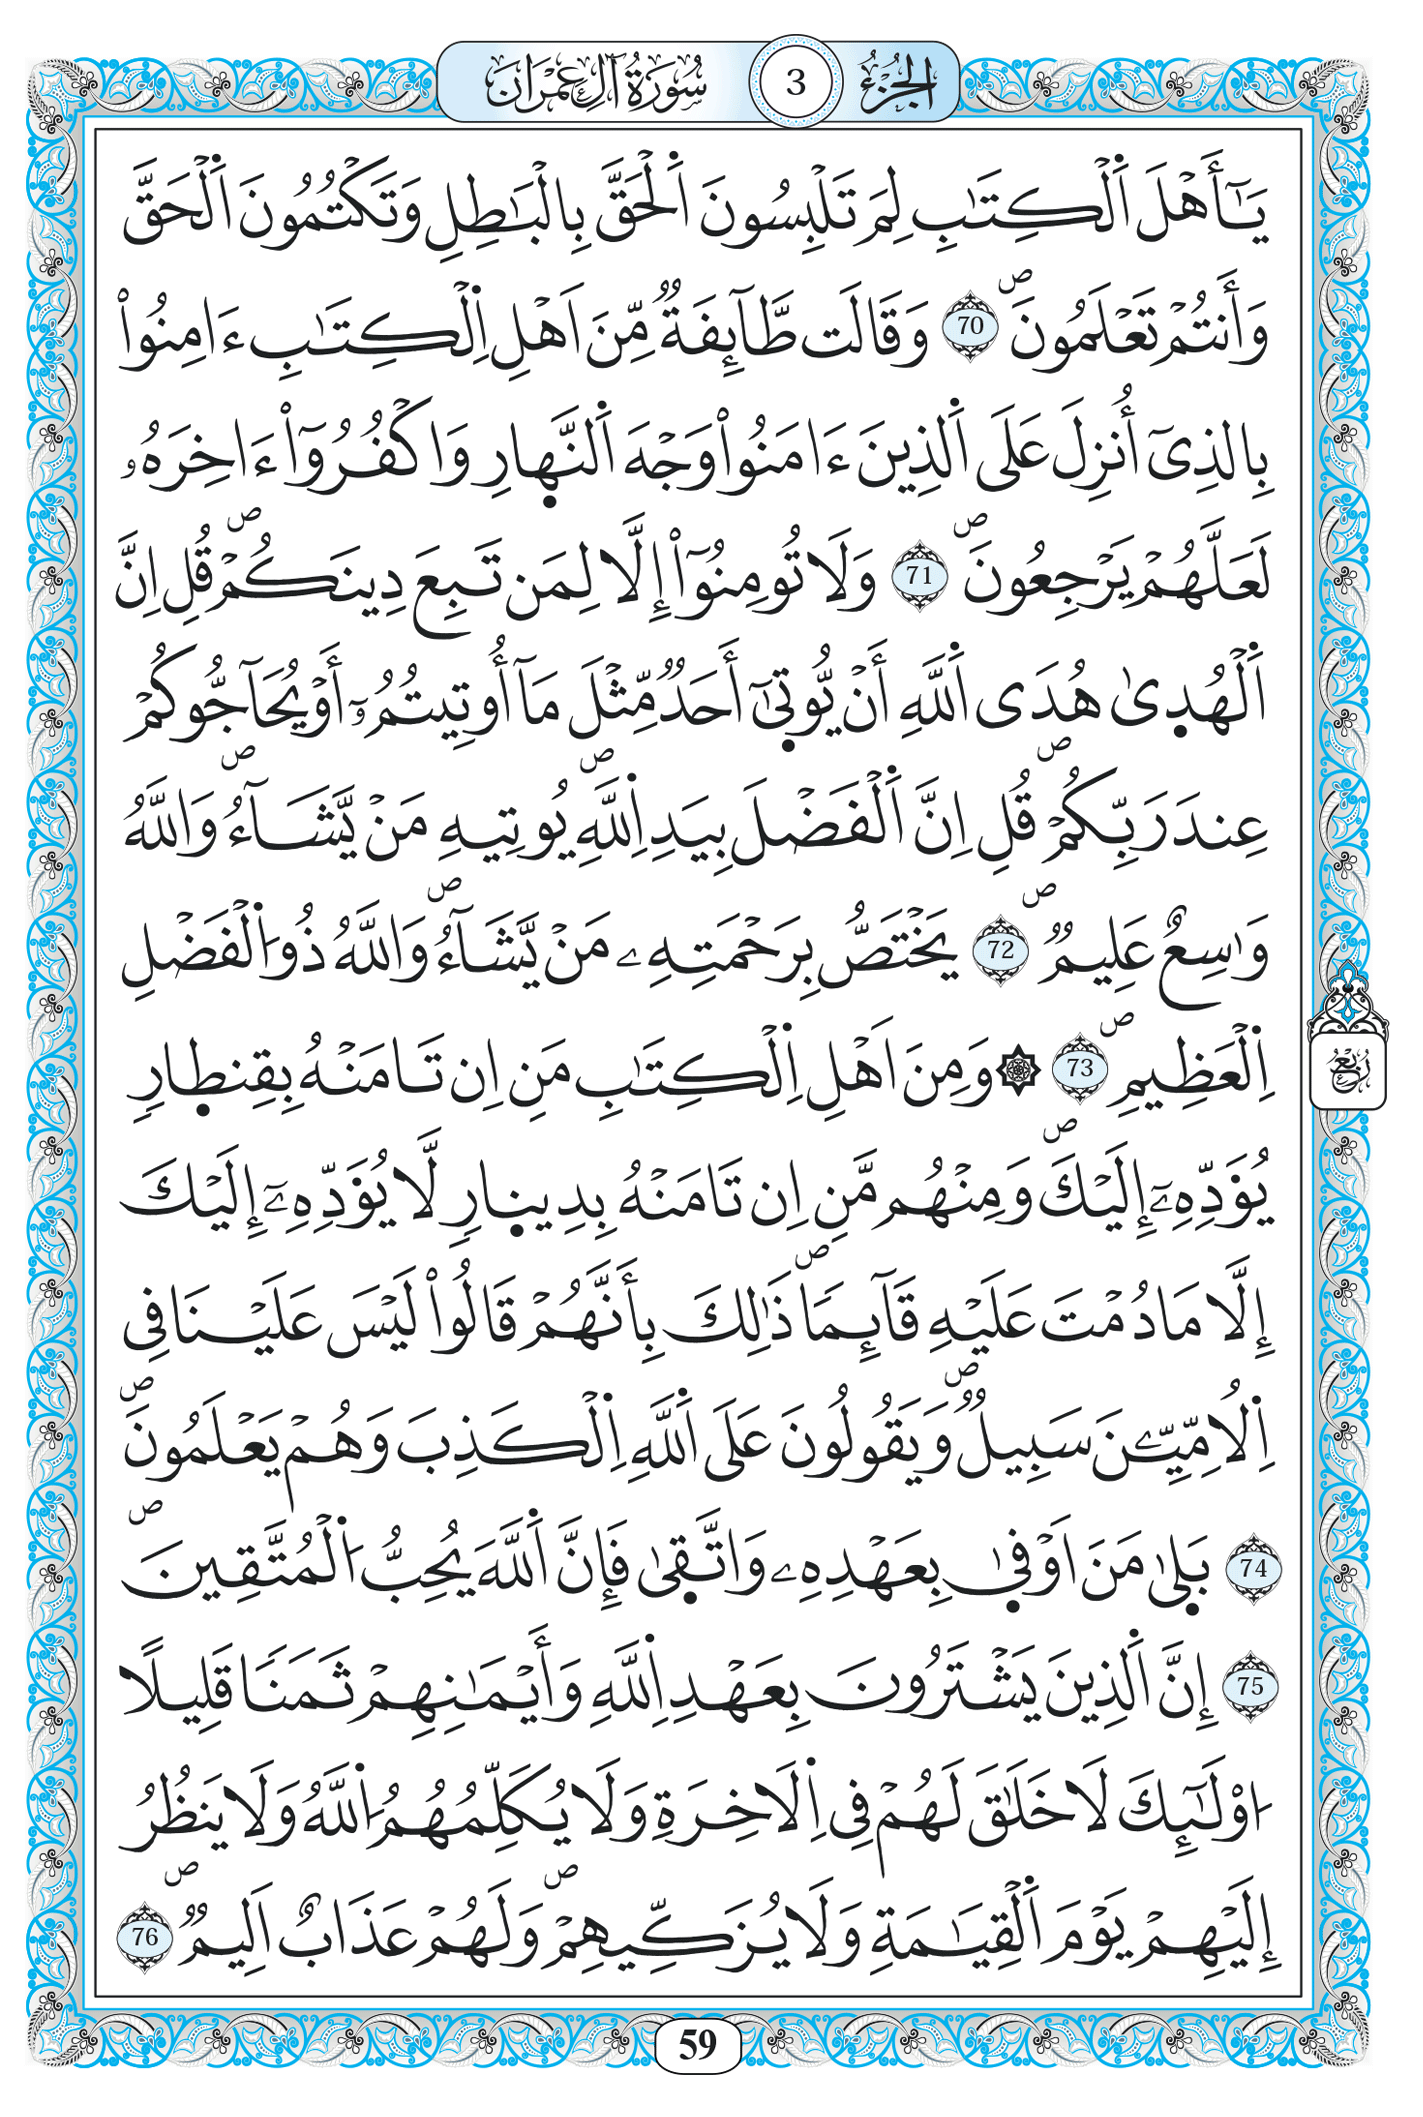 الجزء 3 سورة آل عمران
يَٰٓأَهْلَ اَ۬لْكِتَٰبِ لِمَ تَلْبِسُونَ اَ۬لْحَقَّ بِالْبَٰطِلِ وَتَكْتُمُونَ اَ۬لْحَقَّ
وَأَنتُمْ تَعْلَمُونَۖ 70 وَقَالَت طَّآئِفَةٞ مِّنَ اَهْلِ اِ۬لْكِتَٰبِ ءَامِنُواْ
بِالذِےٓ أُنزِلَ عَلَى اَ۬لذِينَ ءَامَنُواْ وَجْهَ اَ۬لنَّه۪ارِ وَاكْفُرُوٓاْ ءَاخِرَهُۥ
لَعَلَّهُمْ يَرْجِعُونَۖ 71 وَلَا تُومِنُوٓاْ إِلَّا لِمَن تَبِعَ دِينَكُمْۖ قُلِ اِنَّ
اَ۬لْهُد۪ىٰ هُدَى اَ۬للَّهِ أَنْ يُّوت۪ىٰٓ أَحَدٞ مِّثْلَ مَآ أُوتِيتُمُۥٓ أَوْ يُحَآجُّوكُمْ
عِندَ رَبِّكُمْۖ قُلِ اِنَّ اَ۬لْفَضْلَ بِيَدِ اِ۬للَّهِۖ يُوتِيهِ مَنْ يَّشَآءُۖ وَاللَّهُ
وَٰسِعٌ عَلِيمٞۖ 72 يَخْتَصُّ بِرَحْمَتِهِۦ مَنْ يَّشَآءُۖ وَاللَّهُ ذُو اُ۬لْفَضْلِ
اِ۬لْعَظِيمِۖ 73 ۞ وَمِنَ اَهْلِ اِ۬لْكِتَٰبِ مَنِ اِن تَامَنْهُ بِقِنط۪ارٖ
يُؤَدِّهِۦٓ إِلَيْكَۖ وَمِنْهُم مَّنِ اِن تَامَنْهُ بِدِين۪ارٖ لَّا يُؤَدِّهِۦٓ إِلَيْكَ
إِلَّا مَا دُمْتَ عَلَيْهِ قَآئِماٗۖ ذَٰلِكَ بِأَنَّهُمْ قَالُواْ لَيْسَ عَلَيْنَا فِے
اِ۬لُامِّيِّـۧنَ سَبِيلٞۖ وَيَقُولُونَ عَلَى اَ۬للَّهِ اِ۬لْكَذِبَ وَهُمْ يَعْلَمُونَۖ
74 بَل۪ىٰ مَنَ اَوْف۪ىٰ بِعَهْدِهِۦ وَاتَّق۪ىٰ فَإِنَّ اَ۬للَّهَ يُحِبُّ اُ۬لْمُتَّقِينَۖ
75 إِنَّ اَ۬لذِينَ يَشْتَرُونَ بِعَهْدِ اِ۬للَّهِ وَأَيْمَٰنِهِمْ ثَمَناٗ قَلِيلًا
ا۟وْلَٰٓئِكَ لَا خَلَٰقَ لَهُمْ فِے اِ۬لَاخِرَةِ وَلَا يُكَلِّمُهُمُ اُ۬للَّهُ وَلَا يَنظُرُ
إِلَيْهِمْ يَوْمَ اَ۬لْقِيَٰمَةِ وَلَا يُزَكِّيهِمْۖ وَلَهُمْ عَذَابٌ اَلِيمٞۖ 76
ربع
59